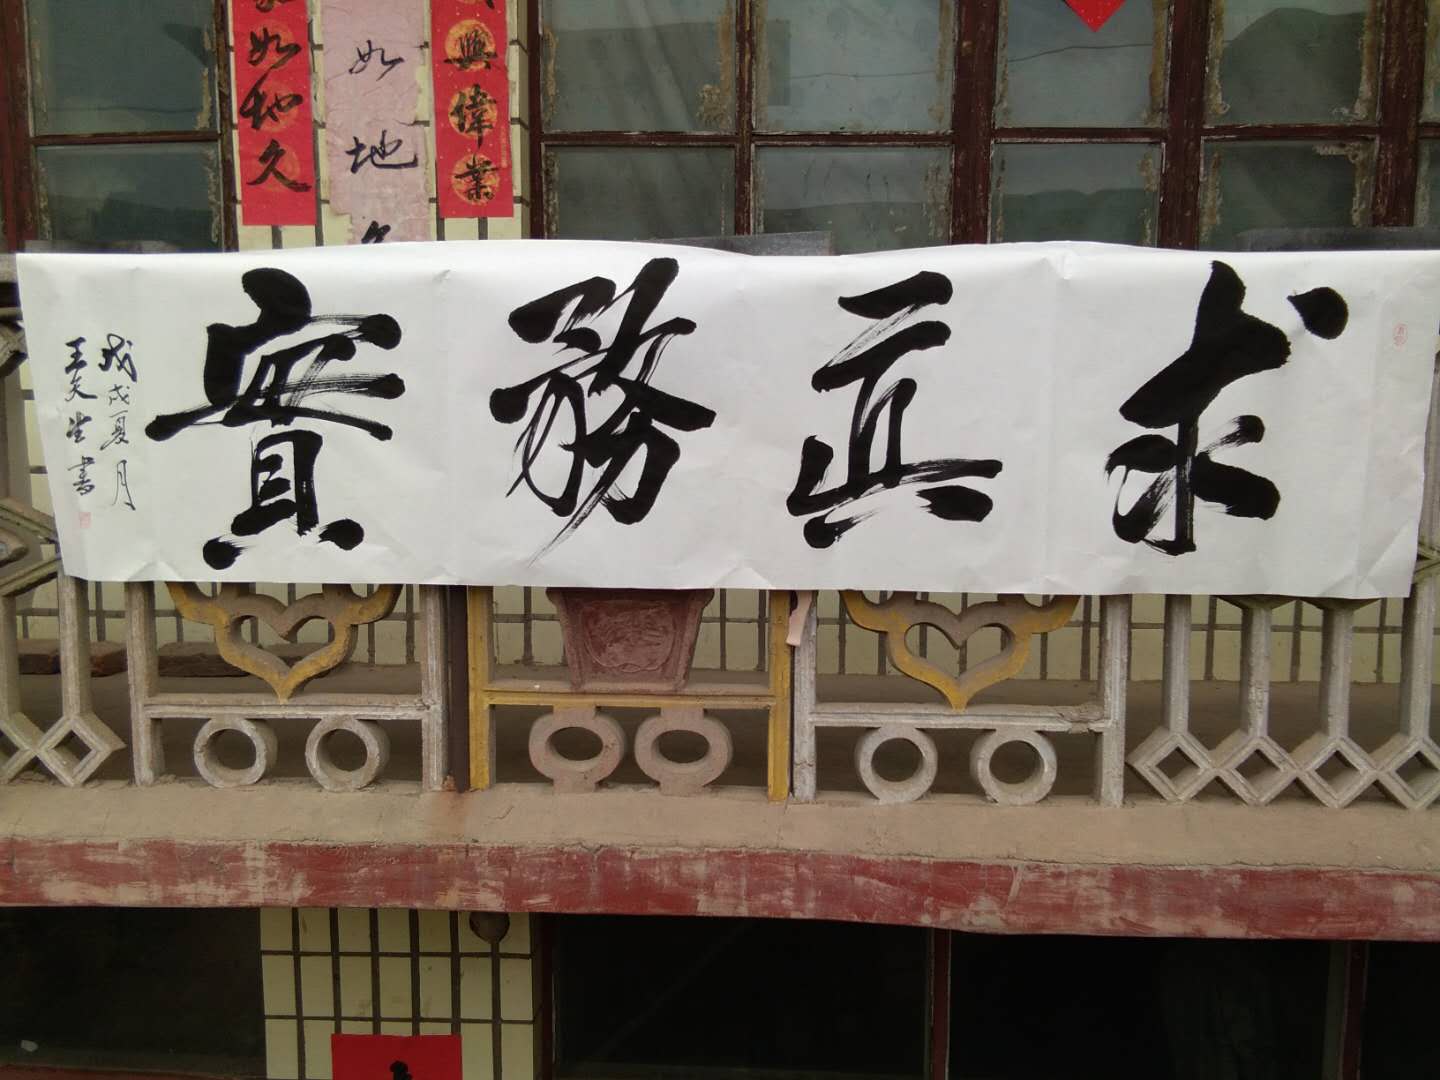 求真務實
戊戌夏月
王文生書
興偉業
如地
如地久